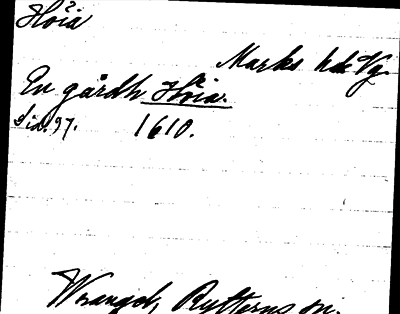 Höia
Marks hd Vg.
En gårdh Höia.
sid. 97. 1610.
Wrangel, Rytterns m.